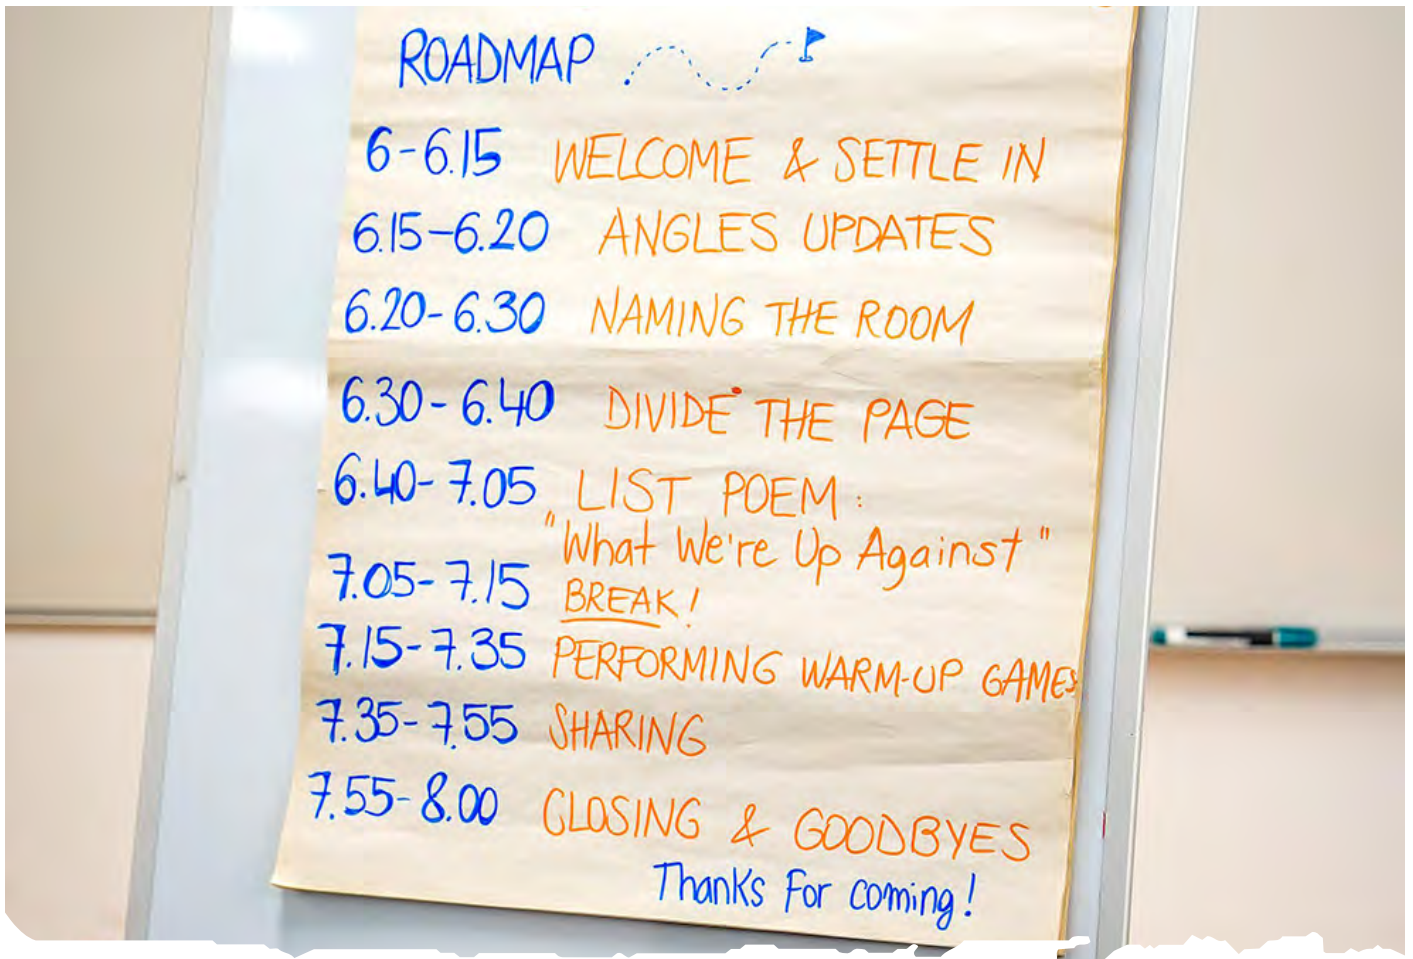 ROADMAP
6-6.15 WELCOME & SETTLE IN
6.15-6.20 ANGLES UPDATES
6.20-6.30 NAMING THE ROOM
6.30-6.40 DIVIDE THE PAGE
6.40-7.05 LIST POEM:
"What We're Up Against"
7.05-7.15 BREAK!
7.15-7.35 PERFORMING WARM-UP GAMES
7.35-7.55 SHARING
7.55-8.00 CLOSING & GOODBYES
Thanks For coming!